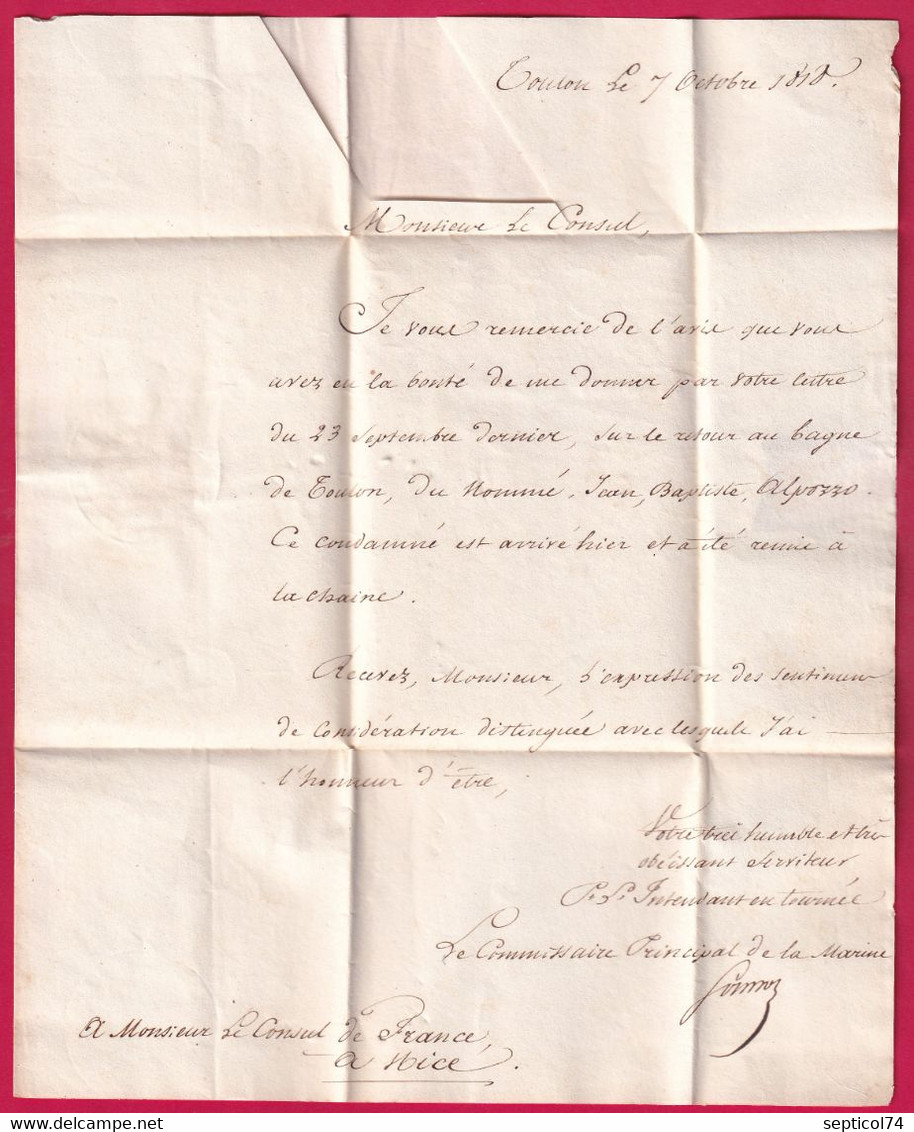 Toulon Le 7 Octobre 1818.
Monsieur Le Consul,
Je vous remercie de l'avis que vous
avez eu la bonté de me donner par votre lettre
du 23 Septembre dernier, sur le retour au bagne
de Toulon, du Nommé, Jean, Baptiste, Alpozzo.
Ce condamné est arrivé hier et a été remis à
la chaine.
Recevez, Monsieur, l'expression des sentimens
de Considération distinguée avec lesquels J'ai
l'honneur d'être,
Votre très humble et très
obéissant Serviteur
Pr. Lr. Intendant en tournée
Le Commissaire Principal de la Marine
A Monsieur Le Consul de France,
A Nice.
delcampe.net
septicol74